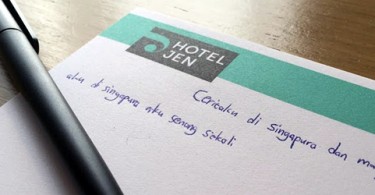 HOTEL
JEN
Ceritaku di Singapura dan
aku di singapura aku senang sekali